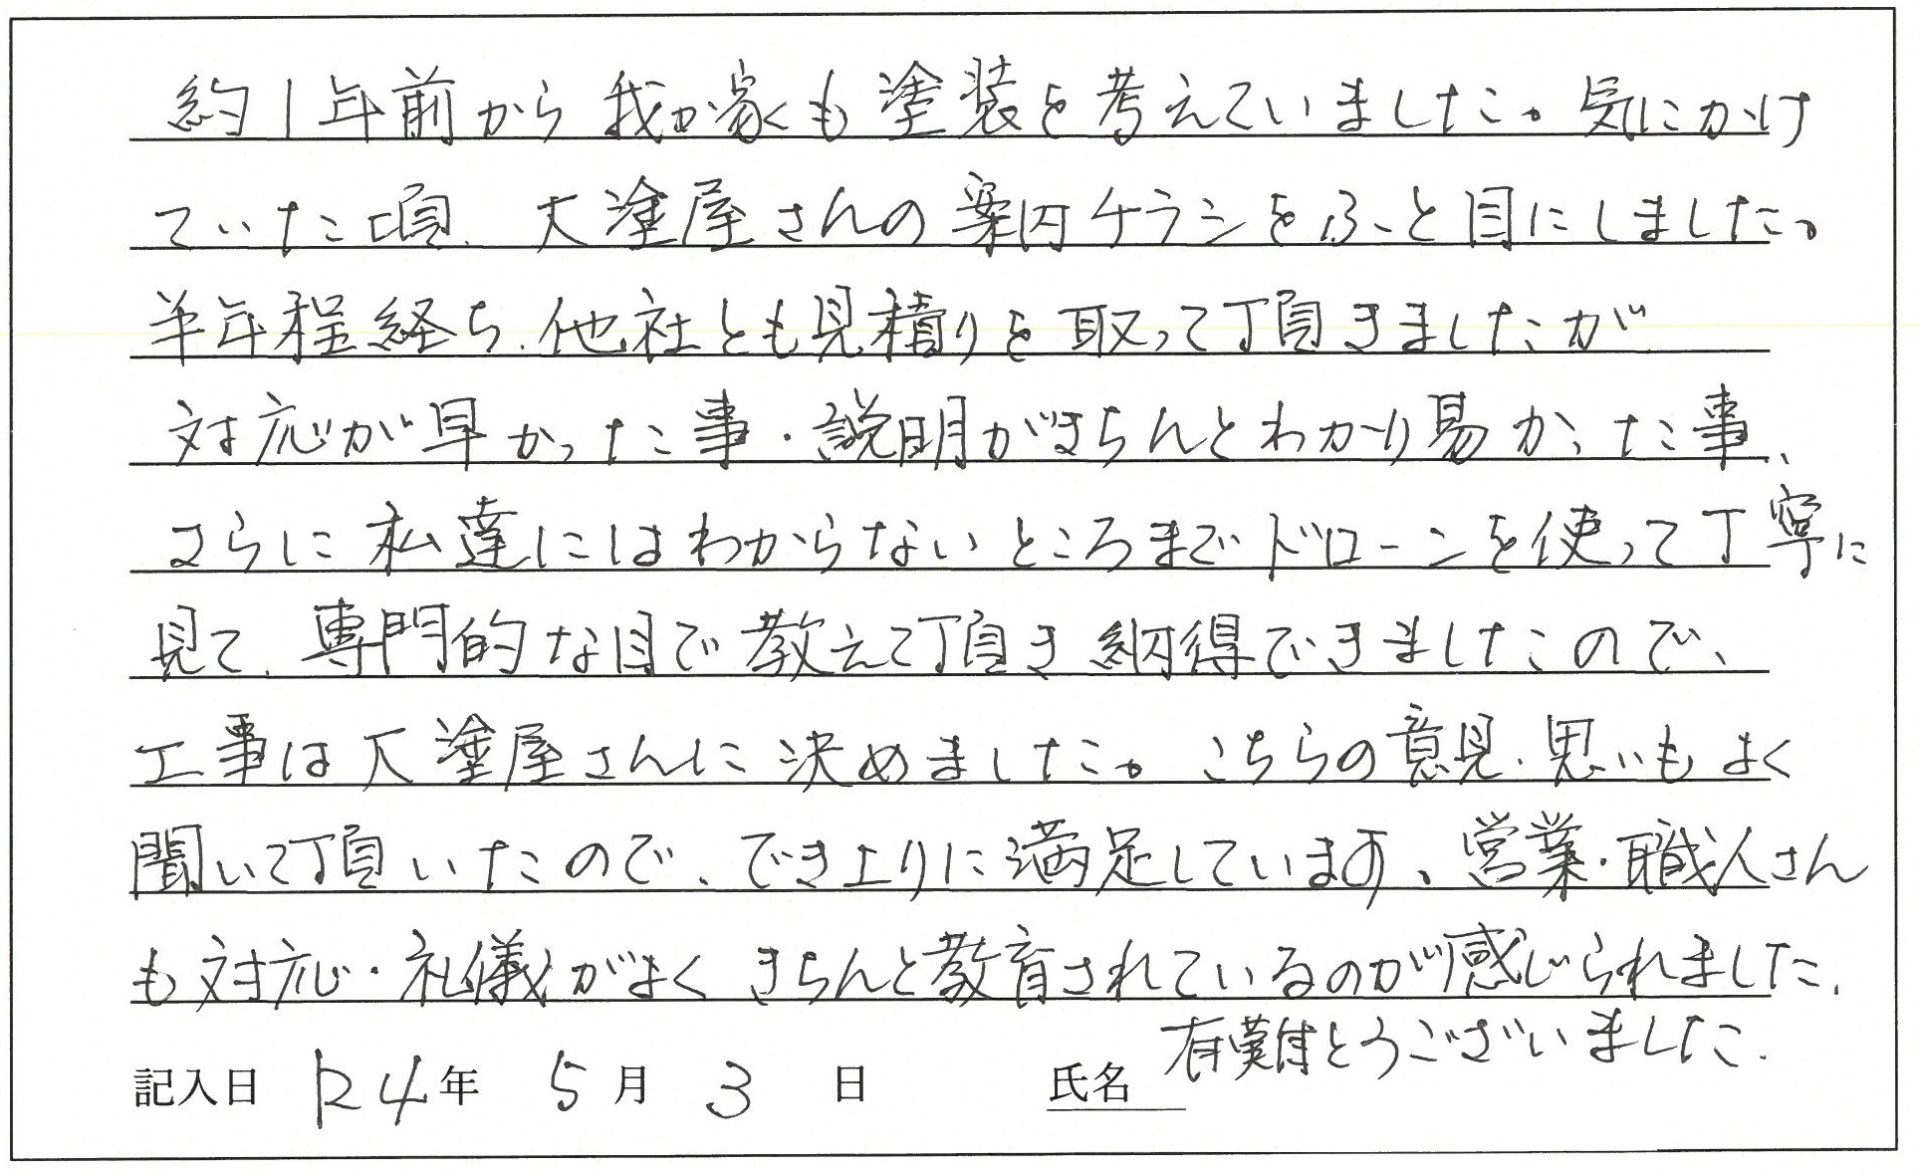 約1年前から我が家も塗装を考えていました。気にかけ
ていた頃、大塗屋さんの案内チラシをふっと目にしました。
半年程経ち、他社とも見積りを取って頂きましたが
対応が早かった事・説明がきちんとわかり易かった事、
さらに私達にはわからないところまでドローンを使って丁寧に
見て、専門的な目で教えて頂き納得できましたので、
工事は大塗屋さんに決めました。こちらの意見・思いもよく
聞いて頂いたので、でき上りに満足しています。営業・職人さん
も対応・礼儀がよくきちんと教育されているのが感じられました。
有難とうございました。
記入日 R4年 5月 3日 氏名